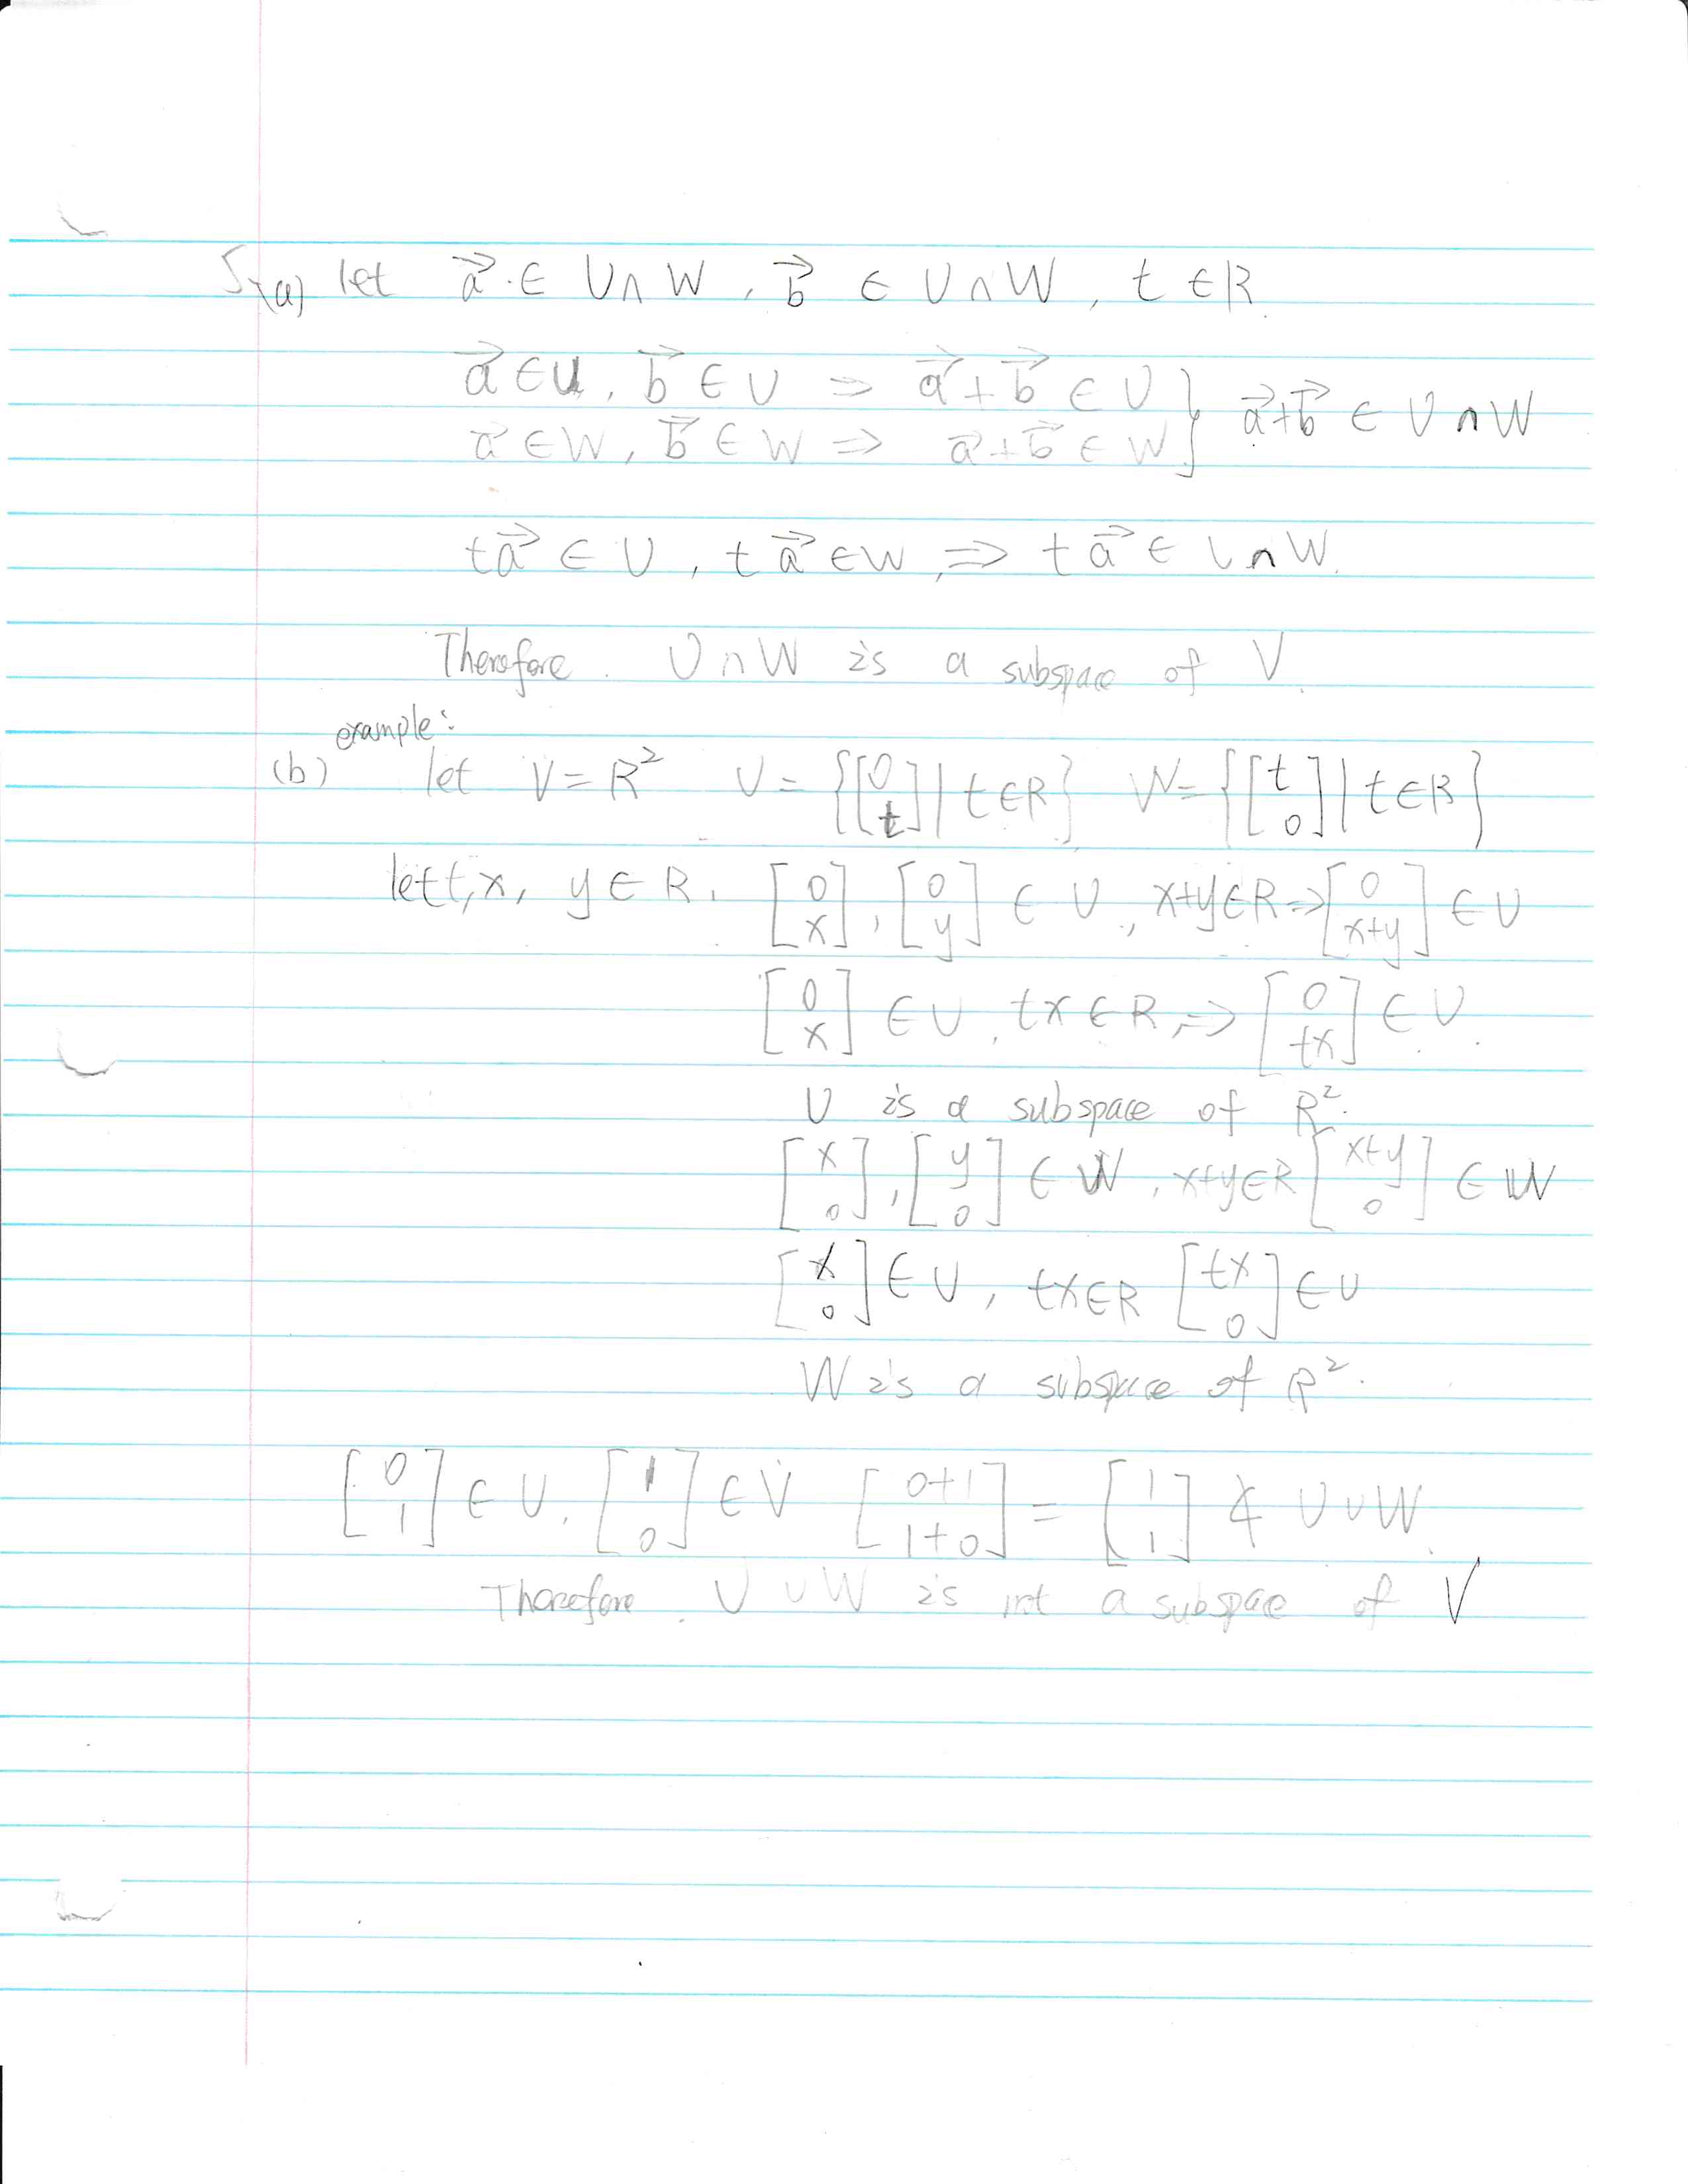 5.(a) let a⃗ ∈ U∩W, b⃗ ∈ U∩W, t ∈R.
a⃗ ∈U, b⃗ ∈ U ⇒ a⃗+b⃗ ∈ U } a⃗+b⃗ ∈ U∩W
a⃗ ∈W, b⃗ ∈ W ⇒ a⃗+b⃗ ∈ W }
ta⃗ ∈ U, ta⃗ ∈W, ⇒ ta⃗ ∈ U∩W.
Therefore. U∩W is a subspace of V.
example:
(b) let V=R² U={[0 t]|t∈R} W={[t 0]|t∈R}
let t,x, y∈R. [0 x],[0 y] ∈ U, x+y∈R⇒[0 x+y] ∈U
[0 x] ∈U, tx∈R,⇒[0 tx]∈U.
U is a subspace of R².
[x 0],[y 0] ∈ W, x+y∈R[x+y 0] ∈W
[x 0]∈U, tx∈R [tx 0]∈U
W is a subspace of R².
[0 1]∈U, [1 0]∈V [0+1 1+0] = [1 1] ∉ U∪W.
Therefore. U∪W is not a subspace of V